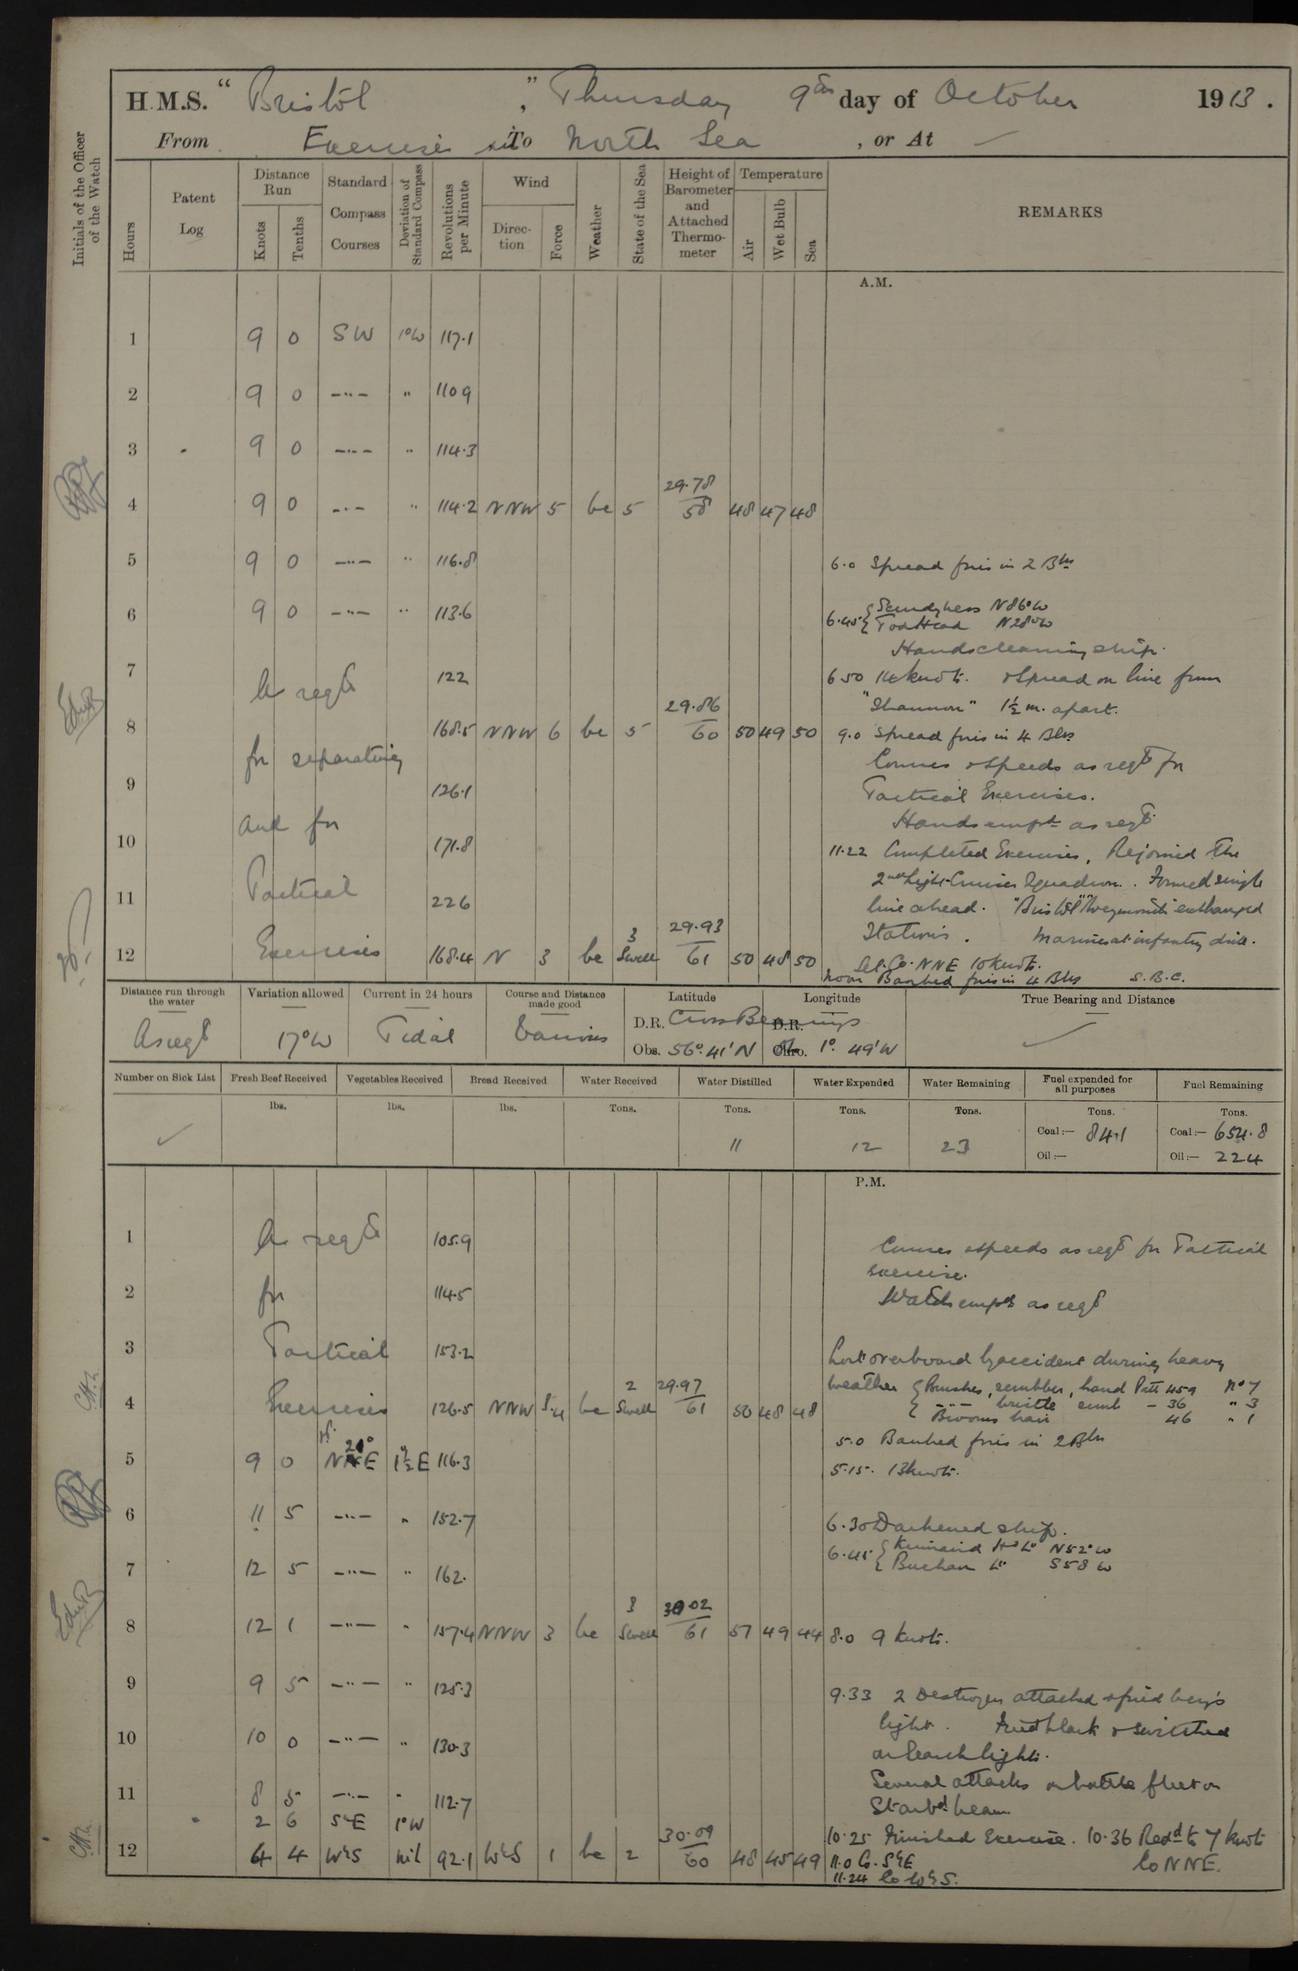 H.M.S. "Bristol", Thursday 9th day of October 1913.
From Exercises in To North Sea, or At ✓
Initials of the Officer of the Watch
Hours
Patent Log
Distance Run
Knots
Tenths
Standard Compass Courses
Deviation of Standard Compass
Revolutions per Minute
Wind
Direction
Force
Weather
State of the Sea
Height of Barometer and Attached Thermometer
Temperature
Air
Wet Bulb
Sea
REMARKS
A.M.
1 9 0 SW 1°W 117.1
2 9 0 —"— " 110.9
3 9 0 —"— " 114.3
4 9 0 —"— " 114.2 NNW 5 bc 5 29.78/58 48 47 48
5 9 0 —"— " 116.8
6 9 0 —"— " 113.6
7 As reqd 122
8 168.5 NNW 6 bc 5 29.86/60 50 49 50
for separating
9 126.1
10 and for 171.8
11 Tactical 226
12 Exercises 168.4 N 3 bc 3 Swell 29.93/61 50 48 50
6.0 Spread fires in 2 Blrs
6.45 { Scurdyness N86°W
{ Tod Head N28°W
Hands cleaning ship.
6.50 14 knots. & Spread on line from
"Shannon" 1½ m. apart.
9.0 Spread fires in 4 Blrs
Courses & Speeds as reqd for
Tactical Exercises.
Hands empd as reqd
11.22 Completed Exercises, Rejoined the
2nd Light Cruiser Squadron. Formed single
line ahead. "Bristol" "Weymouth" exchanged
Stations. Marines at infantry drill.
Co. NNE 10 knots.
Noon Banked fires in 4 Blrs S.B.C.
Distance run through the water
Variation allowed
Current in 24 hours
Course and Distance made good
Latitude
Longitude
True Bearing and Distance
As reqd 17°W Tidal Various
D.R. Cross Bearings D.R.
Obs. 56° 41' N Chro. 1° 49' W ✓
Number on Sick List
Fresh Beef Received
Vegetables Received
Bread Received
Water Received
Water Distilled
Water Expended
Water Remaining
Fuel expended for all purposes
Fuel Remaining
lbs. lbs. lbs. Tons. Tons. Tons. Tons. Tons. Tons.
✓ 11 12 23
Coal:— 84.1 Coal:— 654.8
Oil:— Oil:— 224
P.M.
1 As reqd 105.9
2 for 114.5
3 Tactical 153.2
4 Exercises 126.5 NNW 3-4 bc 2 Swell 29.97/61 50 48 48
5 9 0 N 21° E 1½°E 116.3
6 11 5 —"— " 152.7
7 12 5 —"— " 162.
8 12 1 —"— " 157.4 NNW 3 bc 3 Swell 30.02/61 51 49 44
9 9 5 —"— " 125.3
10 10 0 —"— " 130.3
11 8 5 —"— " 112.7
2 6 S&E 1°W
12 4 4 W&S nil 92.1 W&S 1 bc 2 30.09/60 48 45 49
Courses & speeds as reqd for Tactical
exercise.
Watch empd as reqd
Lost overboard by accident during heavy
weather { Brushes, scrubber, hand Patt 459 No 7
{ —"— bristle - 36 " 3
Brooms hair 46 " 1
5.0 Banked fires in 2 Blrs
5.15. 13 knots.
6.30 Darkened ship.
6.45 { Kinnaird Hd Lt N52°W
{ Buchan Lt S58 W
8.0 9 knots.
9.33 2 Destroyers attacked & fired Very's
light. Fired blank & switched
on Searchlights.
Several attacks on battle fleet on
Starbd beam
10.25 Finished Exercise. 10.36 Redd to 7 knots
11.0 Co. S&E Co NNE.
11.24 Co W&S.